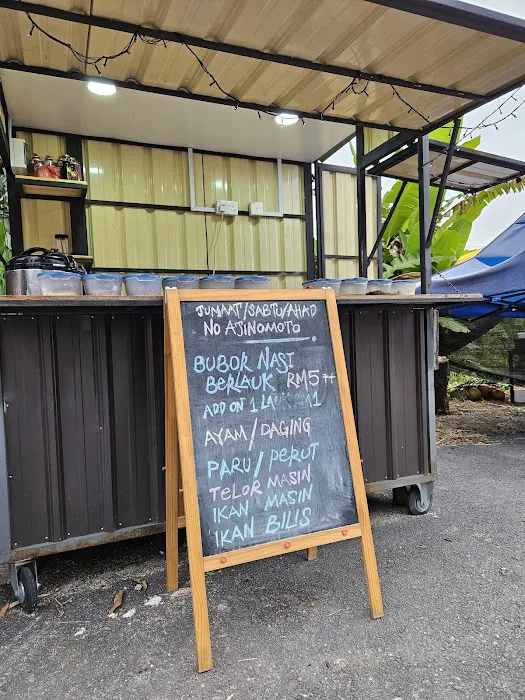 JUMAAT/SABTU/AHAD
NO AJINOMOTO
BUBOR NASI
BERLAUK RM5++
ADD ON 1
AYAM/DAGING
PARU/PERUT
TELOR MASIN
IKAN MASIN
IKAN BILIS